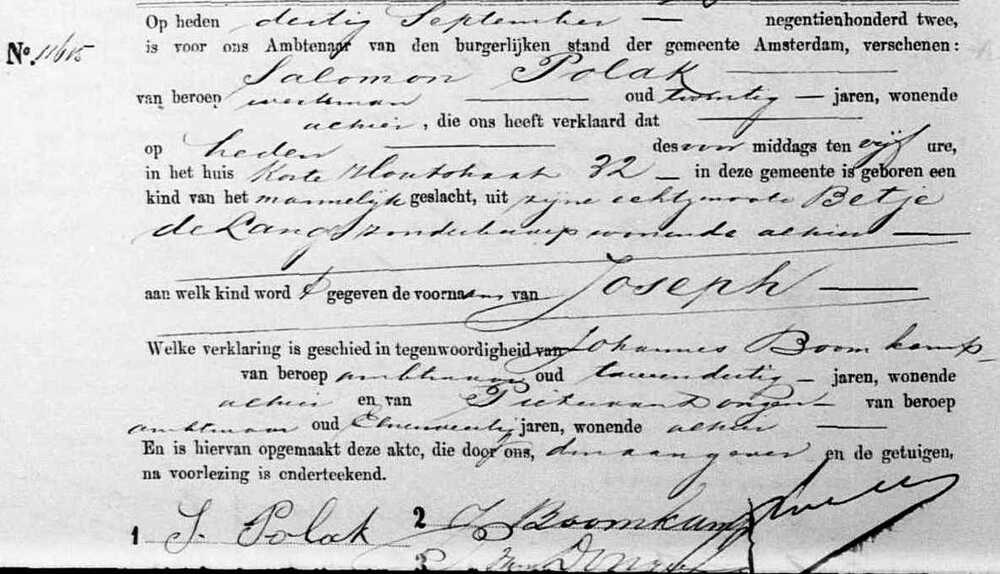 Op heden dertig September — negentienhonderd twee,
No. 11615 is voor ons Ambtenaar van den burgerlijken stand der gemeente Amsterdam, verschenen:
Salomon Polak —
van beroep werkman — oud twintig — jaren, wonende
alhier, die ons heeft verklaard dat —
op heden — des voor middags ten vijf ure,
in het huis Korte Houtstraat 32 — in deze gemeente is geboren een
kind van het mannelijk geslacht, uit zijne echtgenoote Betje
de Lang, zonder beroep wonende alhier —
aan welk kind word t gegeven de voornaam van Joseph —
Welke verklaring is geschied in tegenwoordigheid van Johannes Boomkamp,
van beroep ambtenaar oud tweeendertig — jaren, wonende
alhier en van Pieter van Dongen — van beroep
ambtenaar oud jaren, wonende alhier —
En is hiervan opgemaakt deze akte, die door ons, den aangever en de getuigen,
na voorlezing is onderteekend.
1 S. Polak 2 J Boomkamp
3 van Dongen